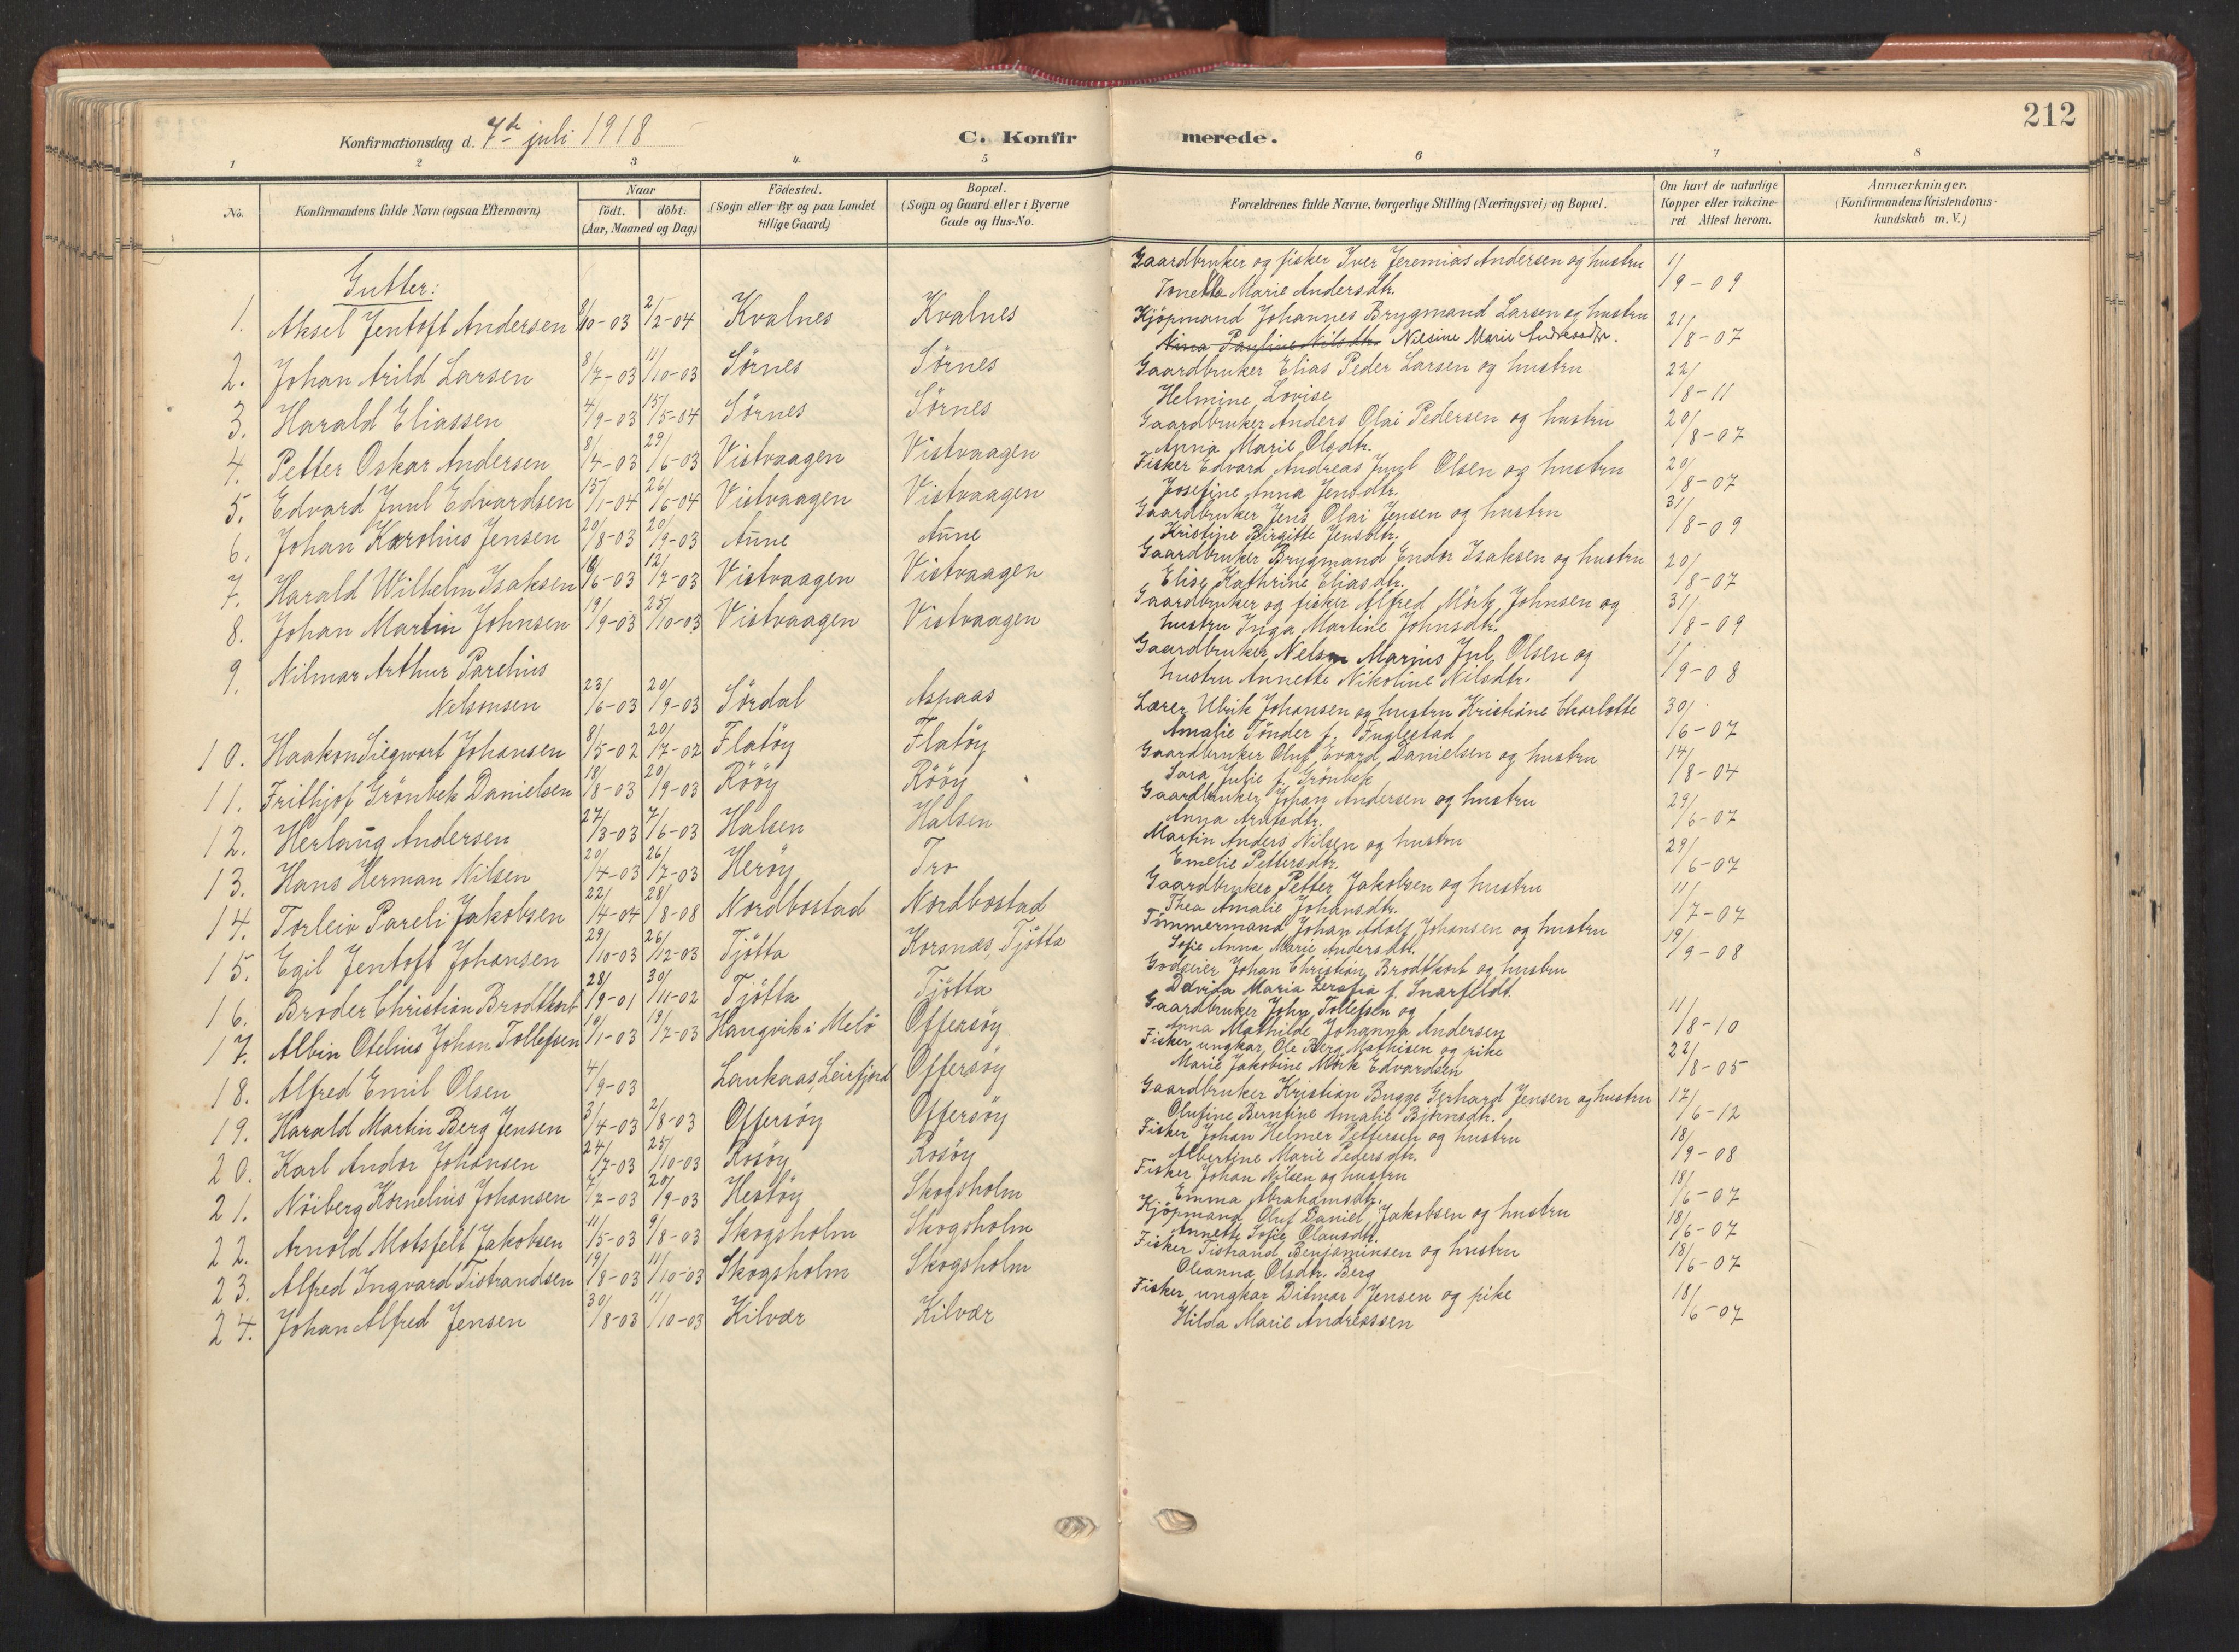 212
Konfirmationsdag d. 7de juli 1918
C. Konfirmerede.
1 2 3 4 5 6 7 8
No.
Konfirmandens fulde Navn (ogsaa Efternavn)
Naar
födt. döbt.
(Aar, Maaned og Dag)
Födested.
(Sogn eller By og paa Landet
tillige Gaard)
Bopæl.
(Sogn og Gaard eller i Byerne
Gade og Hus-No.
Forældrenes fulde Navne, borgerlige Stilling (Næringsvei) og Bopæl.
Om havt de naturlige
Kopper eller vakcine-
ret. Attest herom.
Anmærkninger.
(Konfirmandens Kristendoms-
kundskab m. V.)
Gutter:
1. Aksel Jentoft Andersen 8/10-03 2/2-04 Kvalnes Kvalnes
Gaardbruker og fisker Iver Jeremias Andersen og hustru
Tonette Marie Andersdtr. 1/9-09
2. Johan Arild Larsen 8/7-03 11/10-03 Sörnes Sörnes
Kjöpmand Johannes Brygmand Larsen og hustru
Nina Pauline Nilsdtr. Nilsine Marie Andreasdtr. 21/8-07
3. Harald Eliassen 4/9-03 15/5-04 Sörnes Sörnes
Gaardbruker Elias Peder Larsen og hustru
Helmine Lovise 22/8-11
4. Petter Oskar Andersen 8/4-03 29/6-03 Vistvaagen Vistvaagen
Gaardbruker Anders Olai Pedersen og hustru
Anna Marie Olsdtr. 20/8-07
5. Edvard Juul Edvardsen 15/1-04 26/6-04 Vistvaagen Vistvaagen
Fisker Edvard Andreas Juul Olsen og hustru
Josefine Anna Jensdtr. 20/8-07
6. Johan Karolius Jensen 20/8-03 20/9-03 Aune Aune
Gaardbruker Jens Olai Jensen og hustru
Kristine Birgitte Jensdtr. 31/8-09
7. Harald Wilhelm Isaksen 18/6-03 12/7-03 Vistvaagen Vistvaagen
Gaardbruker Brygmand Endor Isaksen og hustru
Elise Kathrine Eliasdtr. 20/8-07
8. Johan Martin Johnsen 19/9-03 25/10-03 Vistvaagen Vistvaagen
Gaardbruker og fisker Alfred Mörk Johnsen og
hustru Inga Martine Johnsdtr. 31/8-09
9. Nilmar Arthur Parelius
Nelsonsen 23/6-03 20/9-03 Sördal Aspaas
Gaardbruker Nelson Marius Jul Olsen og
hustru Annette Nikoline Nilsdtr. 1/9-08
10. Haakon Siegwart Johansen 8/5-02 20/7-02 Flatöy Flatöy
Lærer Ulrik Johansen og hustru Kristiane Charlotte
Amalie Tönder f. Fuglestad 30/6-07
11. Frithjof Grönbek Danielsen 18/8-03 20/9-03 Rööy Rööy
Gaardbruker Oluf Evard Danielsen og hustru
Sara Julie f. Grönbek 14/8-04
12. Herlaug Andersen 27/3-03 7/6-03 Halsen Halsen
Gaardbruker Johan Andersen og hustru
Anna Arntsdtr. 29/6-07
13. Hans Herman Nilsen 20/4-03 26/7-03 Heröy Tro
Martin Anders Nilsen og hustru
Emelie Pettersdtr. 29/6-07
14. Torleiv Pareli Jakobsen 22/4-04 28/8-08 Nordbostad Nordbostad
Gaardbruker Petter Jakobsen og hustru
Thea Amalie Johansdtr. 11/7-07
15. Egil Jentoft Johansen 29/10-03 26/12-03 Tjötta Korsnæs, Tjötta
Tömmermand Johan Adolf Johansen og hustru
Sofie Anna Marie Andersdtr. 19/9-08
16. Broder Christian Brodtkorb 28/9-01 30/11-02 Tjötta Tjötta
Godseier Johan Christian Brodtkorb og hustru
Davida Maria Zerafia f. Snarfeldt
17. Albin Otelius Johan Tollefsen 10/1-03 19/7-03 Haugvik i Melö Offersöy
Gaardbruker John Tollefsen og
Anna Mathilde Johanna Andersen 11/8-10
18. Alfred Emil Olsen 4/9-03 Leirfjord Offersöy
Fisker ungkar Ole Berg Mathisen og pike
Marie Jakobine Mörk Edvardsen 22/8-05
19. Harald Martin Berg Jensen 3/4-03 2/8-03 Offersöy Offersöy
Gaardbruker Kristian Bugge Gerhard Jensen og hustru
Olufine Berntine Amalie Björnsdtr. 17/6-12
20. Karl Andor Johansen 24/7-03 25/10-03 Rosöy Rosöy
Fisker Johan Helmer Pettersen og hustru
Albertine Marie Pedersdtr. 18/9-08
21. Nöiberg Kornelius Johansen 7/7-03 20/9-03 Hestöy Skogsholm
Fisker Johan Nilsen og hustru
Emma Abrahamsdtr. 18/6-07
22. Arnold Motsfelt Jakobsen 11/5-03 9/8-03 Skogsholm Skogsholm
Kjöpmand Oluf Daniel Jakobsen og hustru
Annette Sofie Olausdtr. 18/6-07
23. Alfred Ingvard Tistrandsen 19/8-03 11/10-03 Skogsholm Skogsholm
Fisker Tistrand Benjaminsen og hustru
Oleanna Olsdtr. Berg 18/6-07
24. Johan Alfred Jensen 30/8-03 11/10-03 Kilvær Kilvær
Fisker, ungkar Ditmar Jensen og pike
Hilda Marie Andreassen 18/6-07